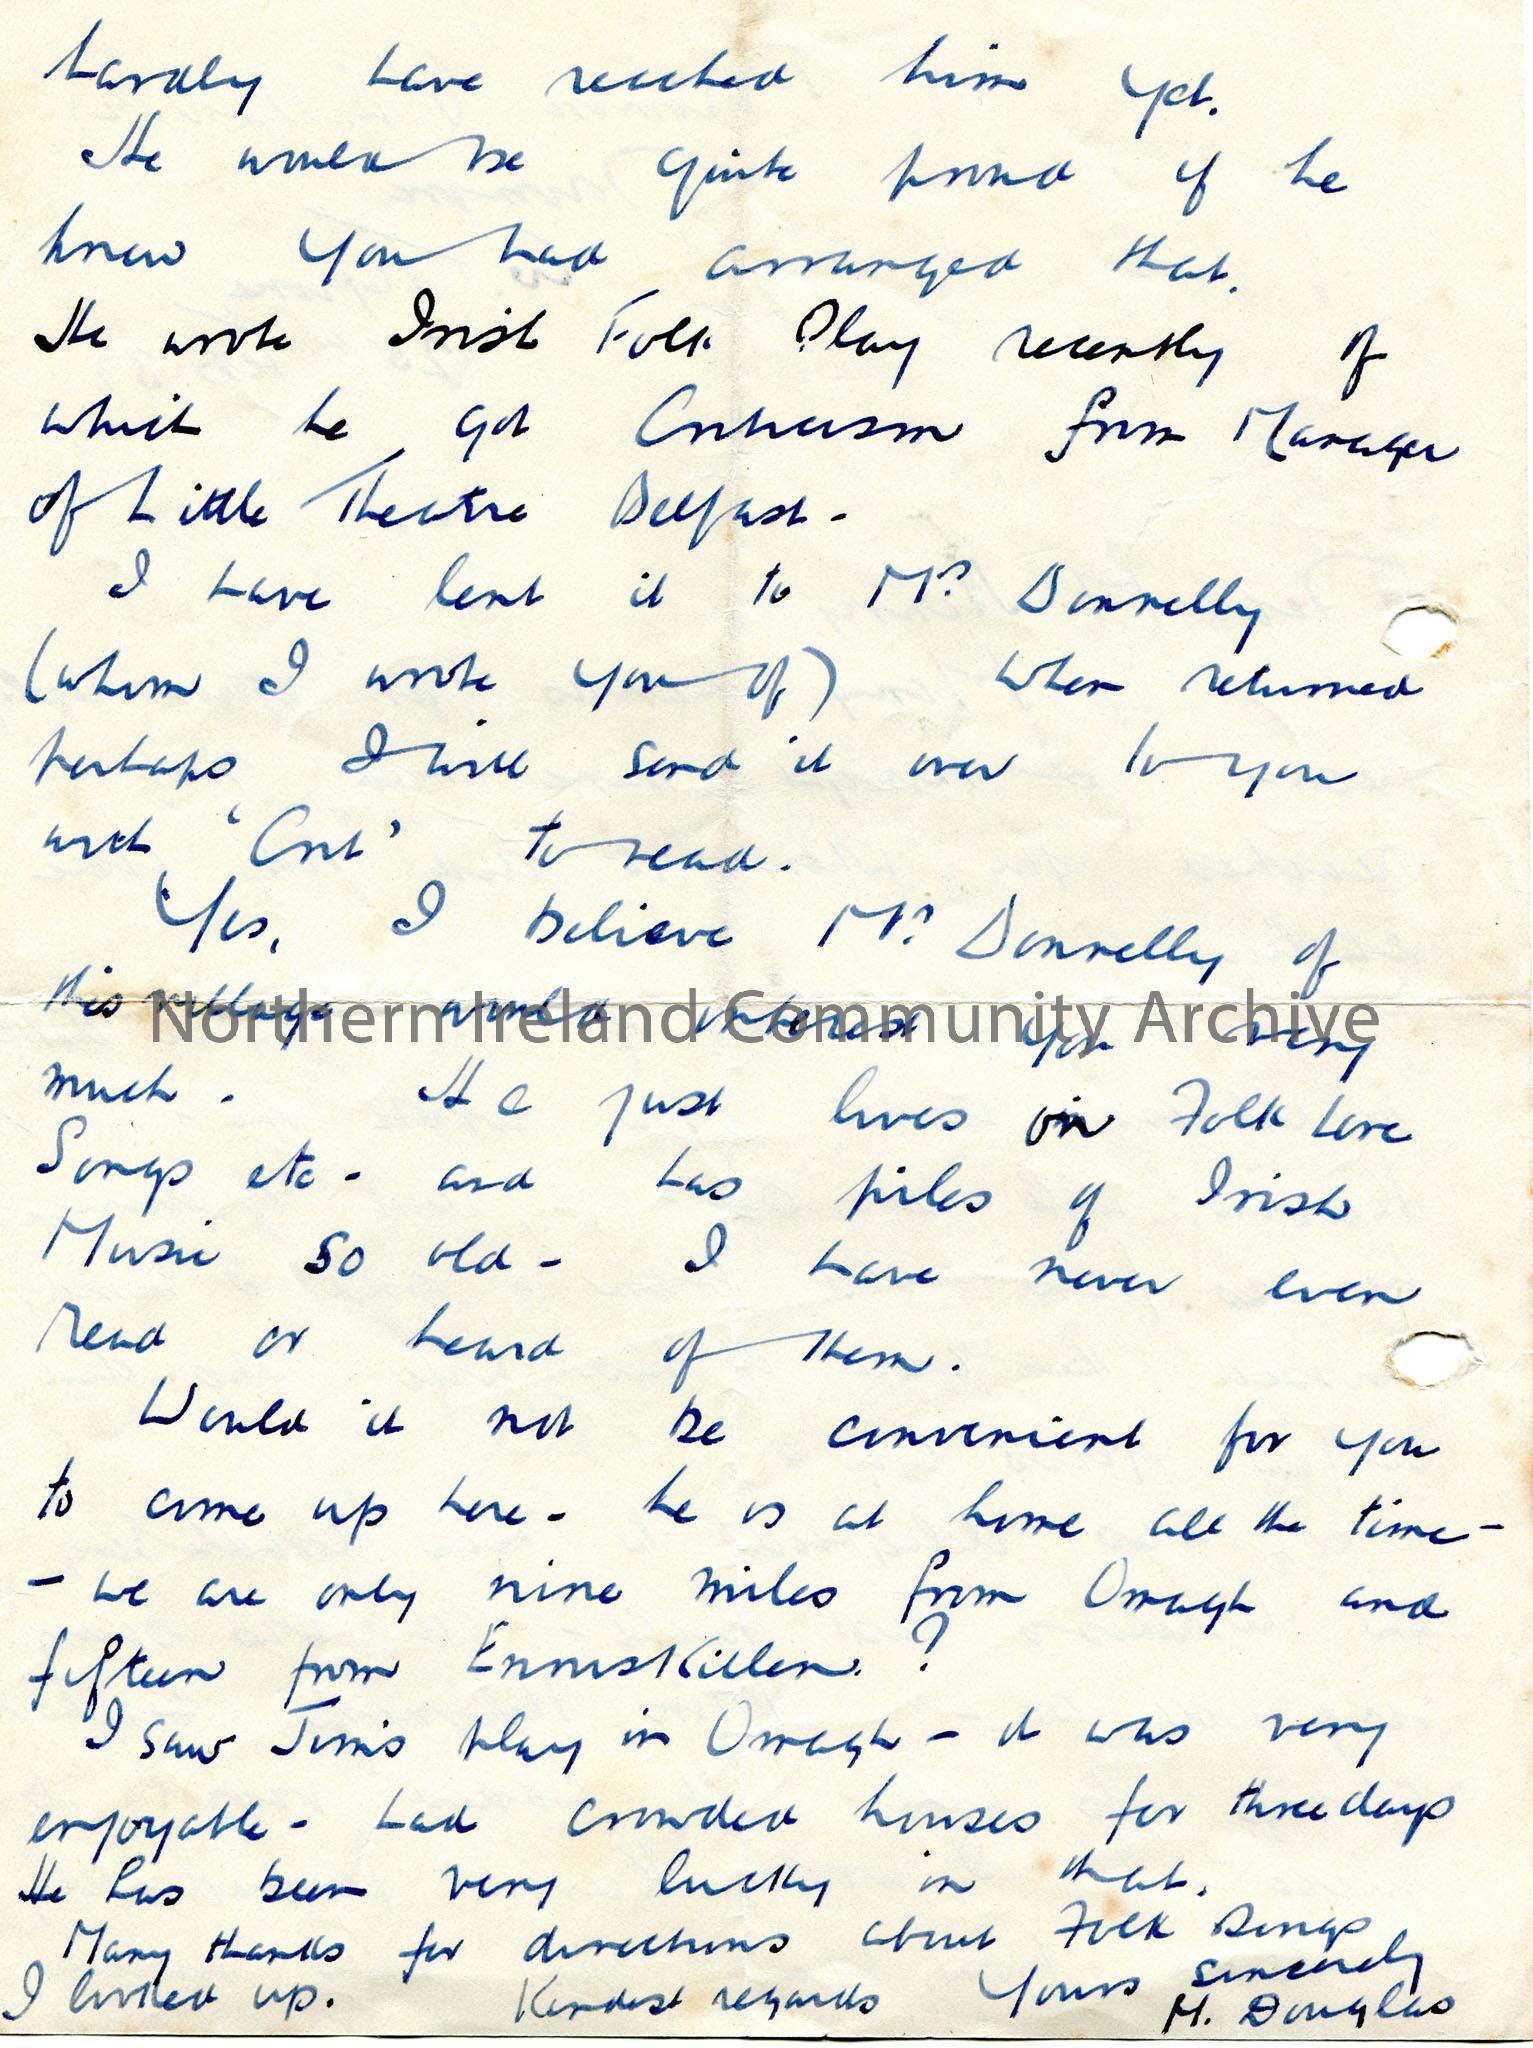 hardly have reached him yet.
He would be quite proud if he
knew you had arranged that.
He wrote Irish Folk Play recently of
which he got Criticism from Manager
of Little Theatre Belfast -
I have lent it to Mr. Donnelly
(whom I wrote you of) When returned
perhaps I will send it over to you
with 'Crit' to read.
Yes, I believe Mr. Donnelly of
this village would interest you very
Northern Ireland Community Archive
much - He just lives in Folk Lore
Songs etc - and has piles of Irish
Music so old - I have never even
read or heard of them.
Would it not be convenient for you
to come up here - he is at home all the time -
- we are only nine miles from Omagh and
fifteen from Enniskillen. ?
I saw Jim's play in Omagh - it was very
enjoyable - had crowded houses for three days
He has been very lucky in that.
Many thanks for directions about Folk Songs
I looked up. Kindest regards Yours sincerely
M. Douglas